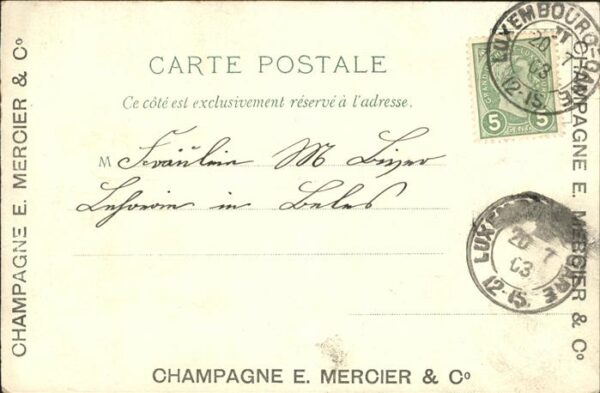 CHAMPAGNE E. MERCIER & Cº
CARTE POSTALE
Ce côté est exclusivement réservé à l'adresse.
M Fräulein M
Lehrerin in Beles
5 5
LUXEMBOURG-GARE
20-7
03
12-15
LUXEMBOURG-GARE
20-7
03
12-15
CHAMPAGNE E. MERCIER & Cº
CHAMPAGNE E. MERCIER & Cº